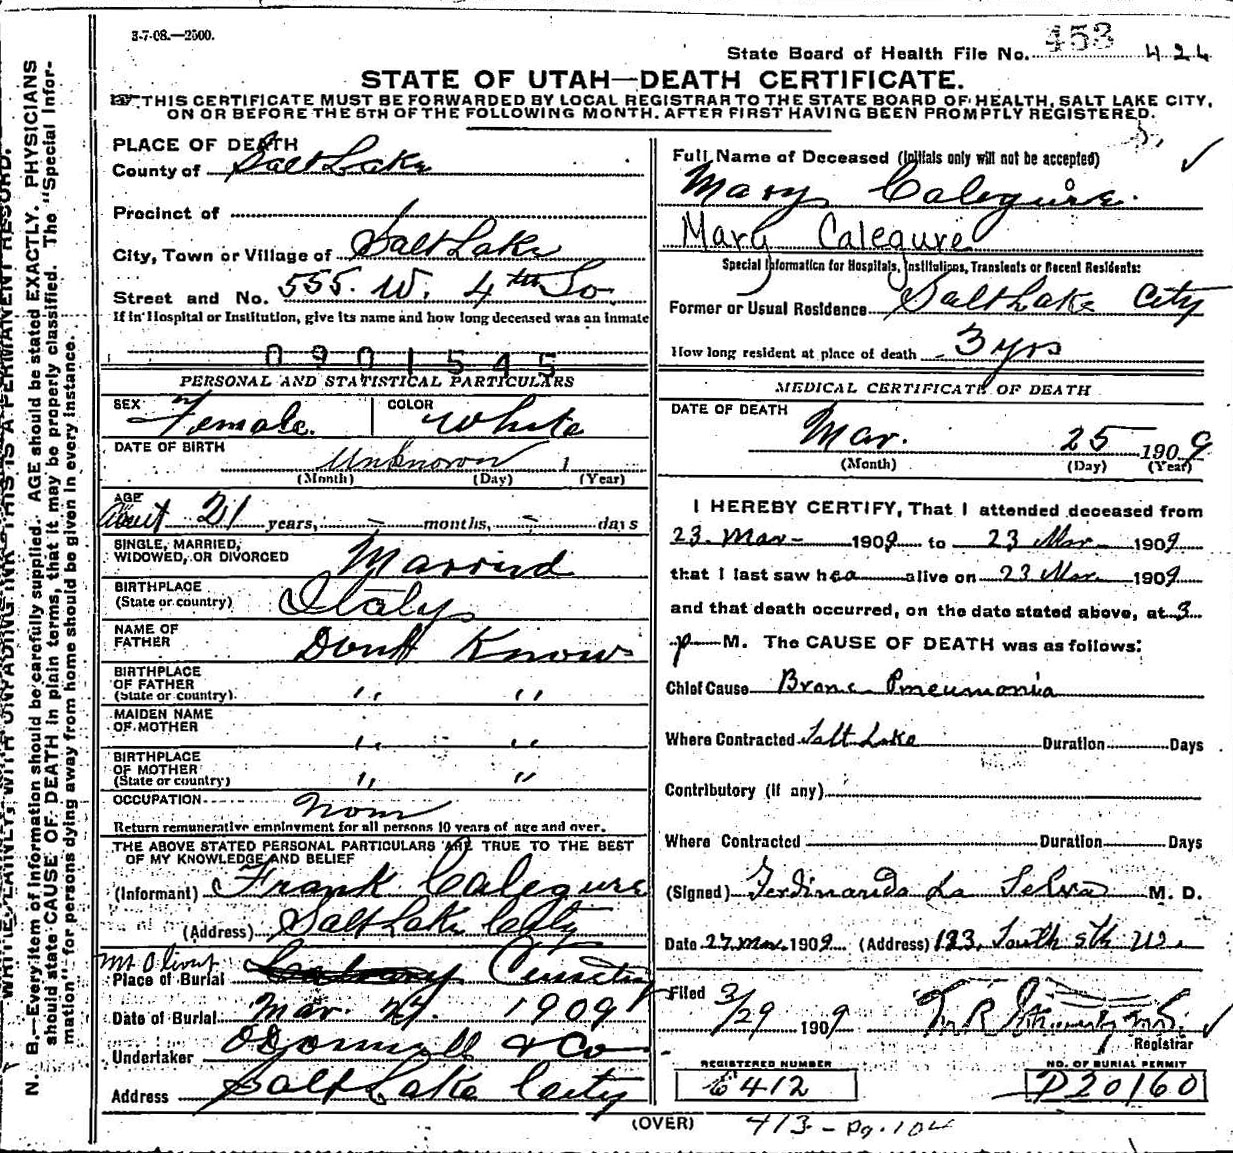 3-7-08.—2500.
State Board of Health File No. 453 424
STATE OF UTAH—DEATH CERTIFICATE.
THIS CERTIFICATE MUST BE FORWARDED BY LOCAL REGISTRAR TO THE STATE BOARD OF HEALTH, SALT LAKE CITY,
ON OR BEFORE THE 5TH OF THE FOLLOWING MONTH. AFTER FIRST HAVING BEEN PROMPTLY REGISTERED.
N. B.—Every item of information should be carefully supplied. AGE should be stated EXACTLY. PHYSICIANS
should state CAUSE OF DEATH in plain terms, that it may be properly classified. The "Special Infor-
mation" for persons dying away from home should be given in every instance.
WRITE PLAINLY, WITH UNFADING INK—THIS IS A PERMANENT RECORD.
PLACE OF DEATH
County of Salt Lake
Precinct of
City, Town or Village of Salt Lake
Street and No. 555. W. 4th So.
If in Hospital or Institution, give its name and how long deceased was an inmate
0901545
PERSONAL AND STATISTICAL PARTICULARS
SEX Female. COLOR White
DATE OF BIRTH Unknown 1
(Month) (Day) (Year)
AGE
About 21 years, – months, – days
SINGLE, MARRIED,
WIDOWED, OR DIVORCED Married
BIRTHPLACE
(State or country) Italy
NAME OF
FATHER Don't Know
BIRTHPLACE
OF FATHER
(State or country) " "
MAIDEN NAME
OF MOTHER " "
BIRTHPLACE
OF MOTHER
(State or country) " "
OCCUPATION None
Return remunerative employment for all persons 10 years of age and over.
THE ABOVE STATED PERSONAL PARTICULARS ARE TRUE TO THE BEST
OF MY KNOWLEDGE AND BELIEF
(Informant) Frank Calegure
(Address) Salt Lake City
Mt Olivet
Place of Burial Calvary Cemetery
Date of Burial Mar. 27. 1909
Undertaker O'Donnell & Co
Address Salt Lake City
Full Name of Deceased (Initials only will not be accepted)
Mary Calegure.
Mary Calegure
Special Information for Hospitals, Institutions, Transients or Recent Residents:
Former or Usual Residence Salt Lake City
How long resident at place of death 3 yrs
MEDICAL CERTIFICATE OF DEATH
DATE OF DEATH
Mar. 25 1909
(Month) (Day) (Year)
I HEREBY CERTIFY, That I attended deceased from
23. Mar 1909 to 23 Mar 1909
that I last saw her alive on 23 Mar 1909
and that death occurred, on the date stated above, at 3
p M. The CAUSE OF DEATH was as follows:
Chief Cause Bronc Pneumonia
Where Contracted Salt Lake Duration Days
Contributory (if any)
Where Contracted Duration Days
(Signed) Ferdinanda La Selva M. D.
Date 27 Mar 1909 (Address) 123. South 5th W.
Filed 3/29 1909
Registrar
REGISTERED NUMBER NO. OF BURIAL PERMIT
E412 D20160
(OVER) 413 – Pg. 104